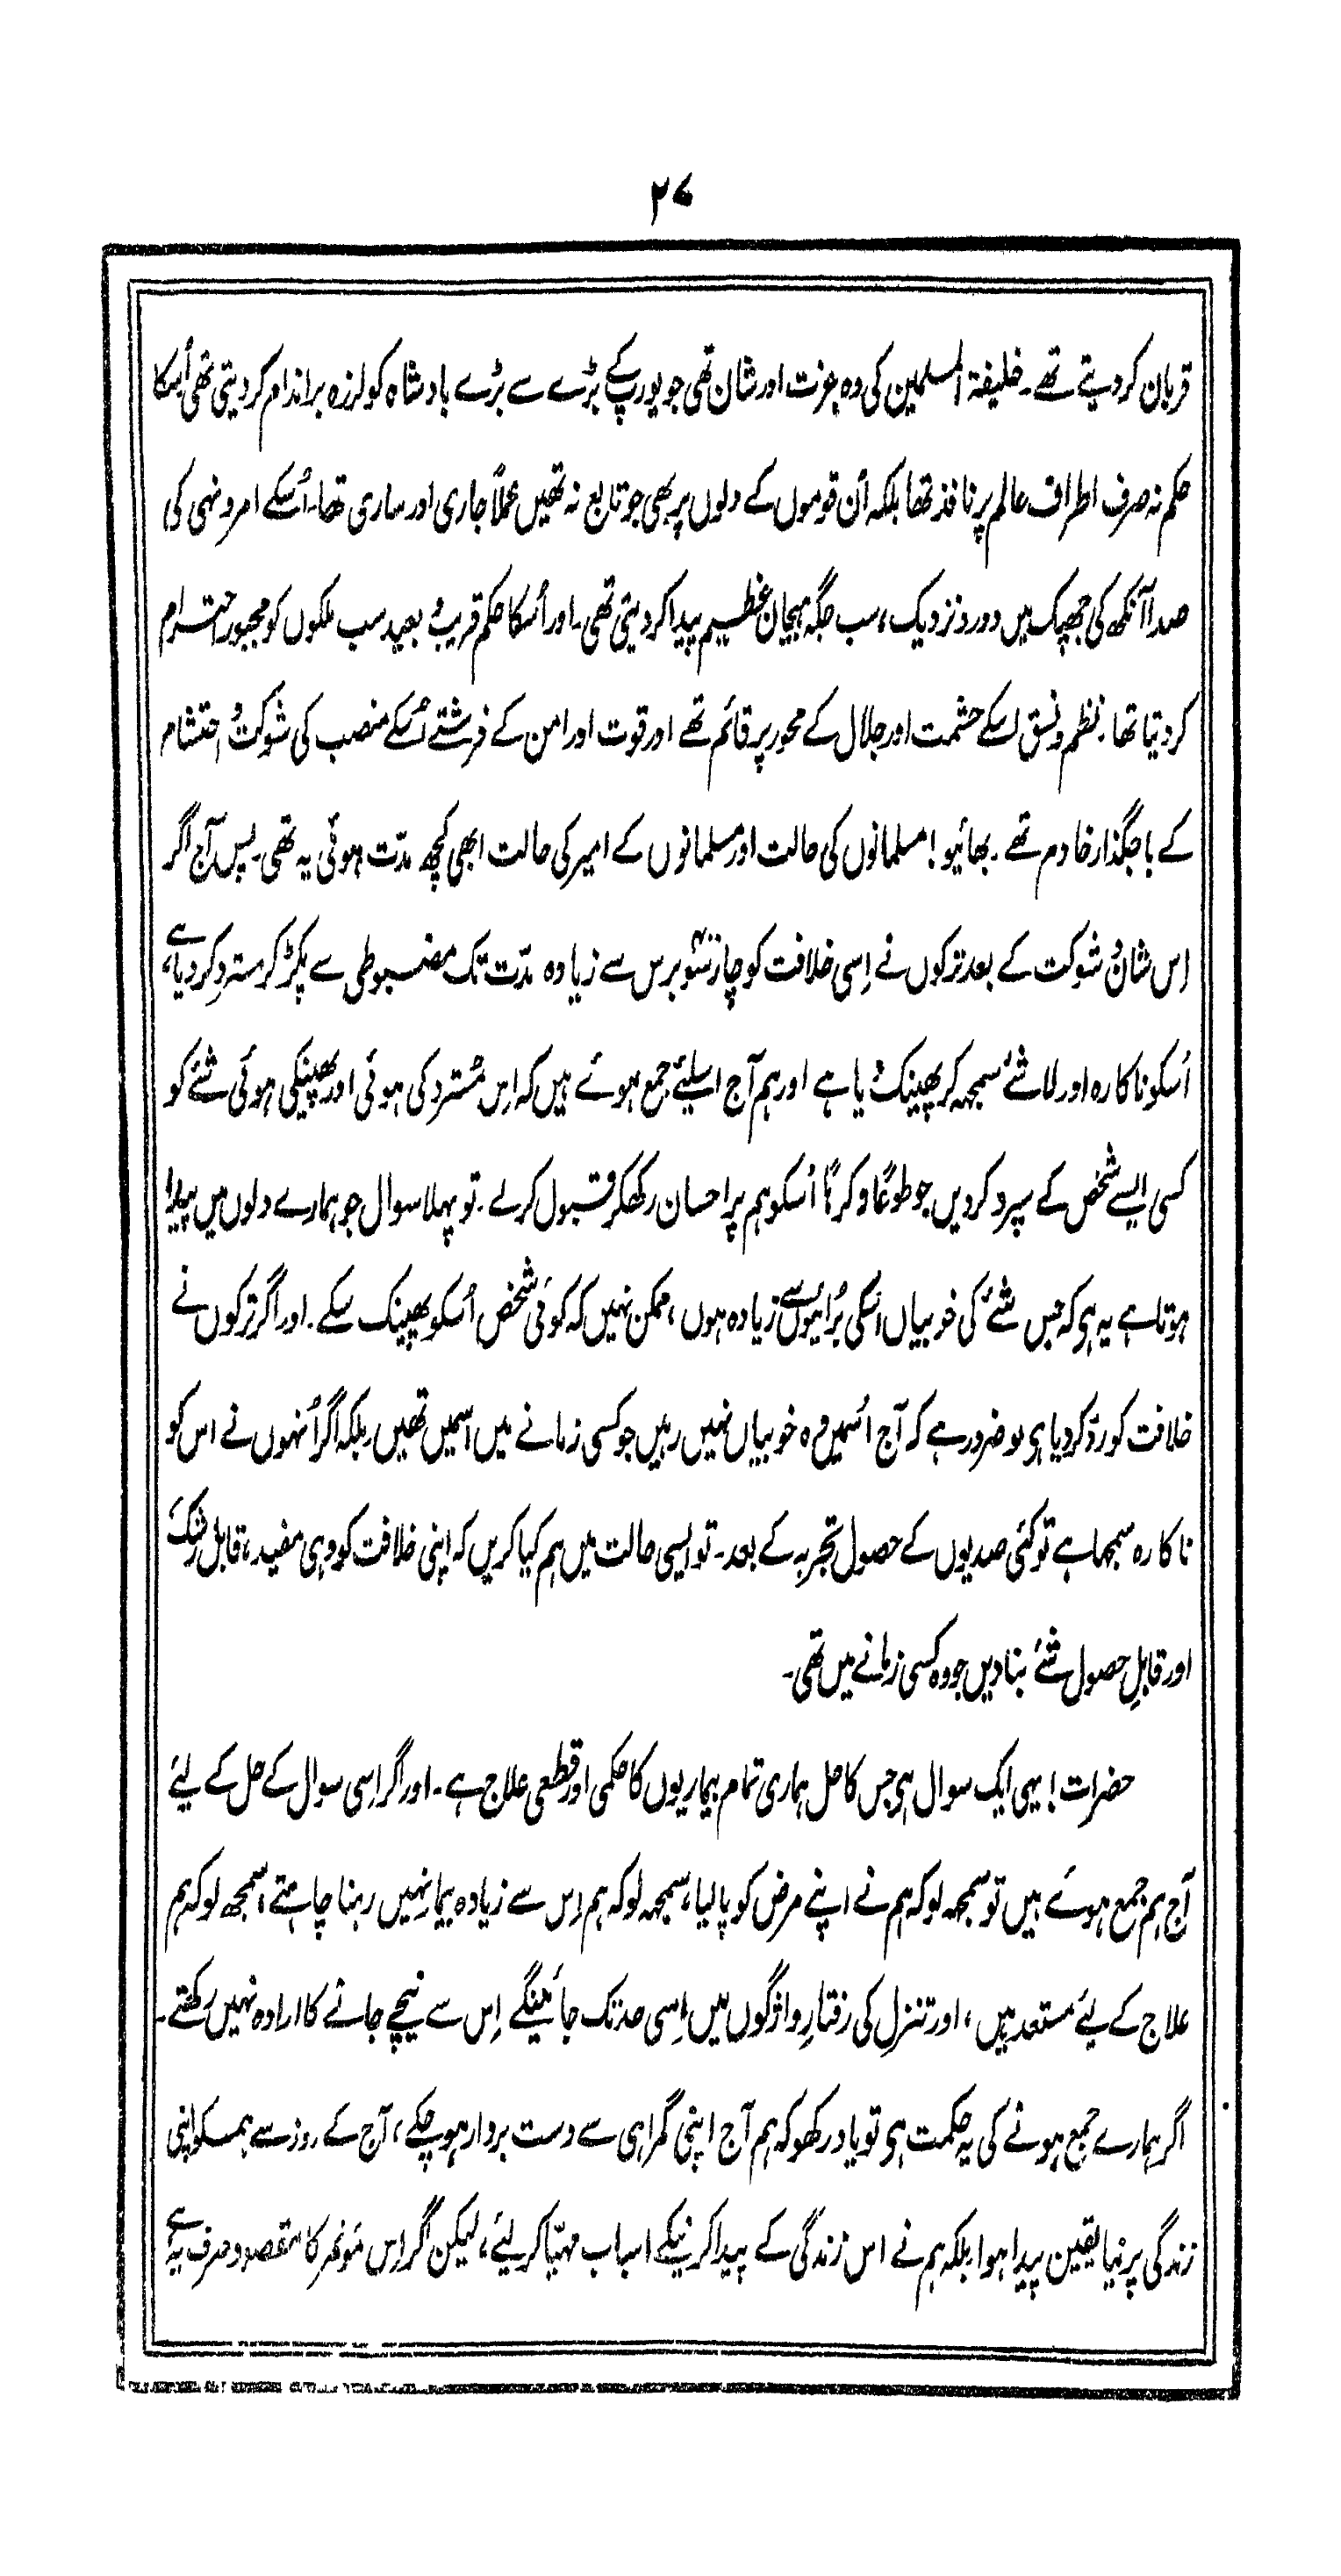 ۲۷
قربان کر دیتے تھے۔ خلیفۃ المسلمین کی وہ عزت اور شان تھی جو یورپ کے بڑے سے بڑے بادشاہ کو لرزہ براندام کر دیتی تھی اُسکا
حکم نہ صرف اطراف عالم پر نافذ تھا بلکہ اُن قوموں کے دلوں پر بھی جو تابع نہ تھیں عملاً جاری اور ساری تھا۔ اُسکے امر و نہی کی
صدا آنکھ کی جھپک میں دور و نزدیک، سب جگہ ہیجان عظیم پیدا کر دیتی تھی۔ اور اُسکا حکم قریب و بعید سب ملکوں کو مجبور احترام
کر دیتا تھا۔ نظم و نسق اسکے حشمت اور جلال کے محور پر قائم تھے اور قوت اور امن کے فرشتے اُسکے منصب کی شوکت و احتشام
کے باجگذار خادم تھے۔ بھائیو! مسلمانوں کی حالت اور مسلمانوں کے امیر کی حالت ابھی کچھ مدّت ہوئی یہ تھی۔ پس آج اگر
اس شان و شوکت کے بعد ترکوں نے اِسی خلافت کو چار سَو برس سے زیادہ مدّت تک مضبوطی سے پکڑ کر مسترد کر دیا ہے،
اُسکو ناکارہ اور لاشئے سمجھہ کر پھینک دیا ہے اور ہم آج اسلیئے جمع ہوئے ہیں کہ اِس مُسترد کی ہوئی اور پھینکی ہوئی شئے کو
کسی ایسے شخص کے سپرد کر دیں جو طوعًا و کرہًا اُسکو ہم پر احسان رکھکر قبول کرلے۔ تو پہلا سوال جو ہمارے دلوں میں پیدا
ہوتا ہے یہ ہی کہ جس شئے کی خوبیاں اُسکی بُرائیوں سے زیادہ ہوں، ممکن نہیں کہ کوئی شخص اُسکو پھینک سکے۔ اور اگر ترکوں نے
خلافت کو ردّ کر دیا ہی سو ضرور ہے کہ آج اُسمیں وہ خوبیاں نہیں رہیں جو کسی زمانے میں اسمیں تھیں بلکہ اگر اُنہوں نے اس کو
ناکارہ سمجھا ہے تو کئی صدیوں کے حصول تجربہ کے بعد۔ تو ایسی حالت میں ہم کیا کریں کہ اپنی خلافت کو وہی مفید، قابل رشک
اور قابلِ حصول شئے بنا دیں جو وہ کسی زمانے میں تھی۔
حضرات! یہی ایک سوال ہی جس کا حل ہماری تمام بیماریوں کا حکمی اور قطعی علاج ہے۔ اور اگر اِسی سوال کے حل کے لیئے
آج ہم جمع ہوئے ہیں تو سمجھہ لو کہ ہم نے اپنے مرض کو پا لیا، سمجھہ لو کہ ہم اِس سے زیادہ بیمار نہیں رہنا چاہتے، سمجھ لو کہ ہم
علاج کے لیئے مستعد ہیں، اور تنزل کی رفتارِ واژگوں میں اِسی حد تک جائینگے اِس سے نیچے جانے کا ارادہ نہیں رکھتے۔
اگر ہمارے جمع ہونے کی یہ حکمت ہی تو یاد رکھو کہ ہم آج اپنی گمراہی سے دست بردار ہو چکے، آج کے روز سے ہمسکو اپنی
زندگی پر نیا یقین پیدا ہوا بلکہ ہم نے اس زندگی کے پیدا کرنیکے اسباب مہیّا کر لیئے، لیکن اگر اِس مؤتمر کا مقصود صرف یہ ہے